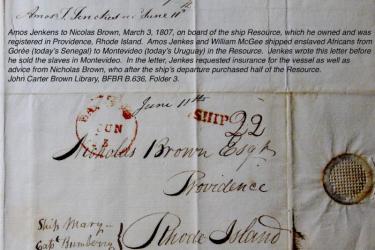 Amos Jenkens to Nicolas Brown, March 3, 1807, on board of the ship Resource, which he owned and was
registered in Providence, Rhode Island. Amos Jenkes and William McGee shipped enslaved Africans from
Gorée (today's Senegal) to Montevideo (today's Uruguay) in the Resource. Jenkes wrote this letter before
he sold the slaves in Montevideo. In the letter, Jenkes requested insurance for the vessel as well as
advice from Nicholas Brown, who after the ship's departure purchased half of the Resource.
John Carter Brown Library, BFBR B.636, Folder 3.
June 11th
JUN
SHIP 22
Nicholas Brown Esqr
Providence
Ship Mary
Capt Bumberry
Rhode Island